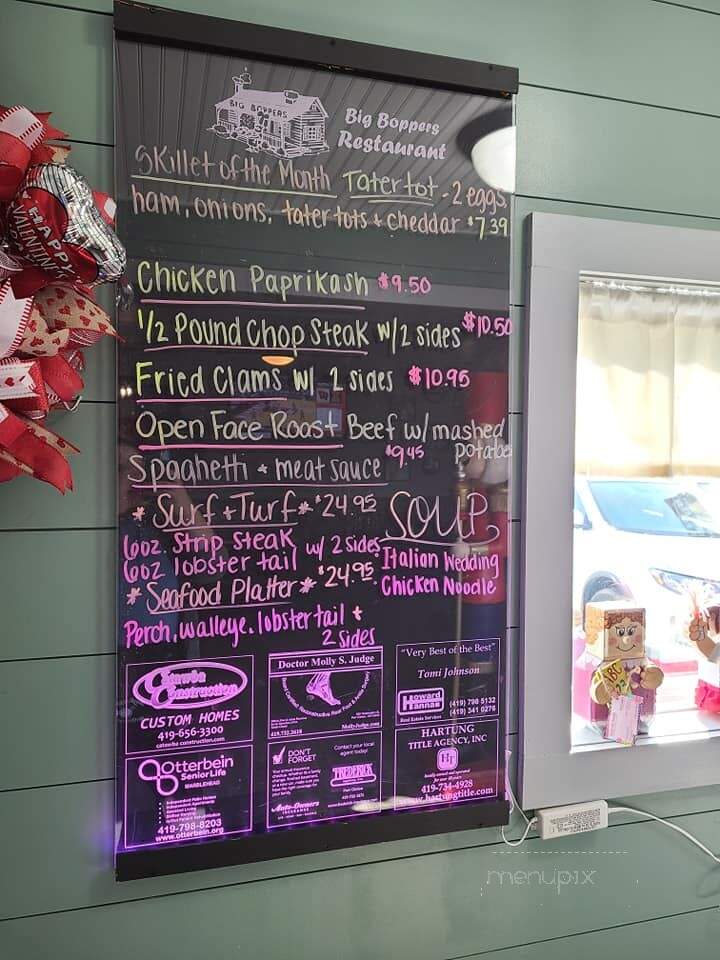 BIG BOPPERS
Big Boppers
Restaurant
Skillet of the Month Tater tot - 2 eggs,
ham, onions, tater tots + cheddar $7.39
Chicken Paprikash $9.50
1/2 Pound Chop Steak w/2 sides $10.50
Fried Clams w/ 2 sides $10.95
Open Face Roast Beef w/ mashed
potatoes
Spaghetti + meat sauce $9.45
* Surf + Turf * $24.95
6oz. Strip steak
6oz lobster tail w/ 2 sides
* Seafood Platter * $24.95
Perch, walleye, lobster tail +
2 sides
SOUP
Italian Wedding
Chicken Noodle
HAPPY
VALENTINE'S
Catawba
Construction
CUSTOM HOMES
419-656-3300
catawba construction.com
Doctor Molly S. Judge
MollyJudge.com
"Very Best of the Best"
Tomi Johnson
Howard
Hanna
Real Estate Services
(419) 798 5132
(419) 341 0276
Otterbein
SeniorLife
MARBLEHEAD
419-798-8203
www.otterbein.org
DON'T
FORGET
Contact your local
agent today!
FREDERICK
Auto-Owners
INSURANCE
HARTUNG
TITLE AGENCY, INC
HT
locally owned and operated
419-734-4928
www.hartungtitle.com
menupix